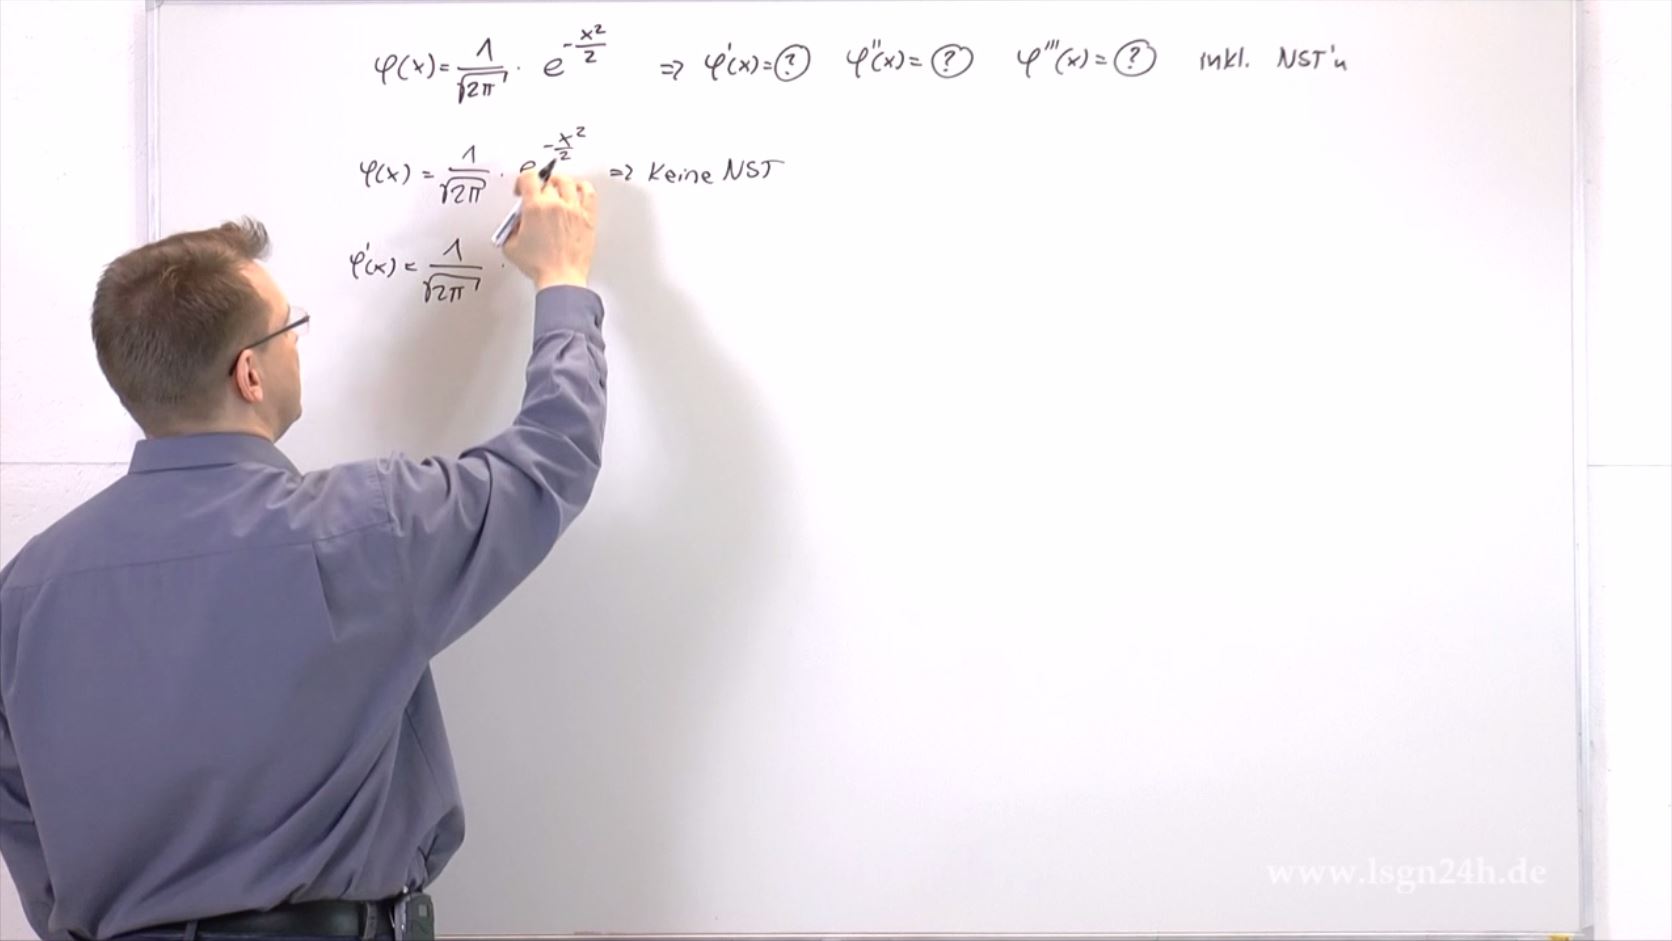 φ(x) = 1/√2π · e^(-x²/2) ⇒ φ'(x) = ? φ''(x) = ? φ'''(x) = ? inkl. NST'n
φ(x) = 1/√2π · e^(-x²/2) ⇒ Keine NST
φ'(x) = 1/√2π ·
www.lsgn24h.de